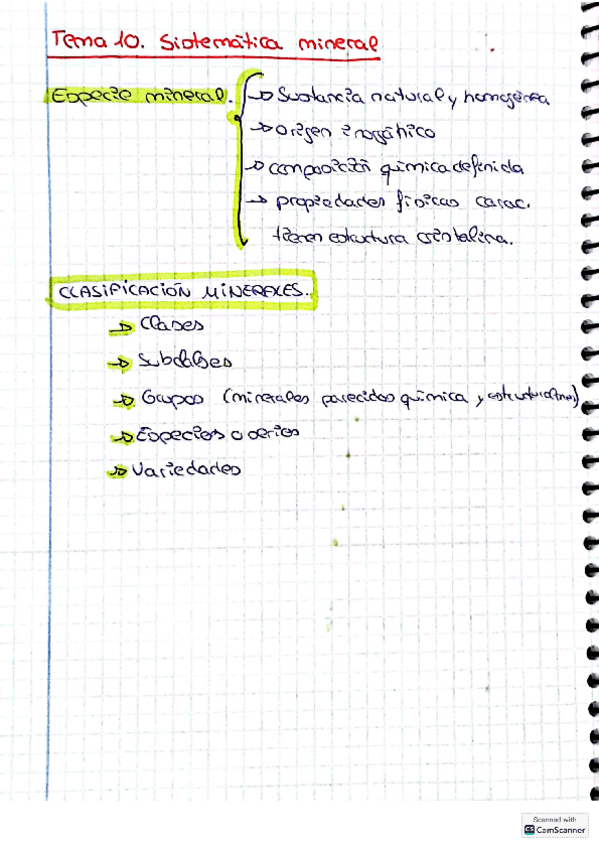 Tema 10. Sistemática mineral
Especie mineral. → Sustancia natural y homogénea
→ origen inorgánico
→ composición química definida
→ propiedades físicas carac.
tienen estructura cristalina.
CLASIFICACIÓN MINERALES.
→ Clases
→ Subclases
→ Grupos (minerales parecidos química y estructuralmn)
→ Especies o series
→ Variedades
Scanned with
CS CamScanner